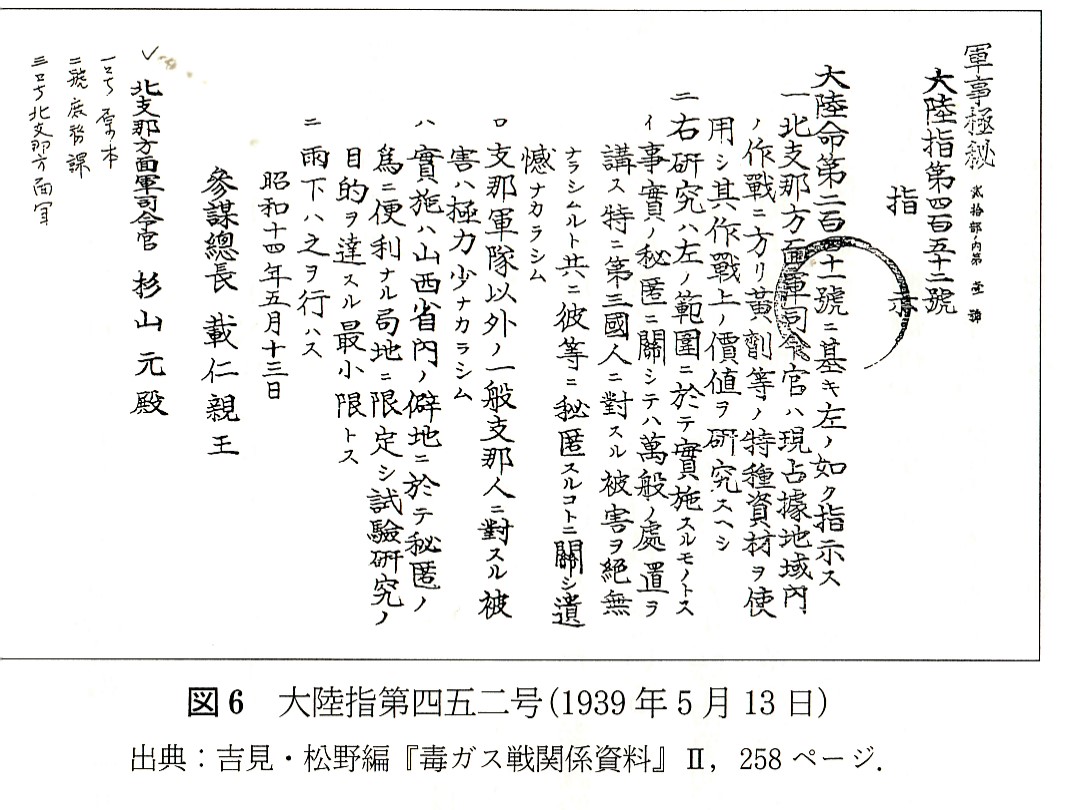 軍事極秘 貳拾部ノ内第壹號
大陸指第四百五十二號
指示
大陸命第二百四十一號ニ基キ左ノ如ク指示ス
一北支那方面軍司令官ハ現占據地域內
ノ作戰ニ方リ黃剤等ノ特種資材ヲ使
用シ其作戰上ノ價値ヲ研究スヘシ
二右研究ハ左ノ範圍ニ於テ實施スルモノトス
イ事實ノ秘匿ニ關シテハ萬般ノ處置ヲ
講ス特ニ第三國人ニ對スル被害ヲ絕無
ナラシムルト共ニ彼等ニ秘匿スルコトニ關シ遺
憾ナカラシム
ロ支那軍隊以外ノ一般支那人ニ對スル被
害ハ極力少ナカラシム
ハ實施ハ山西省內ノ僻地ニ於テ秘匿ノ
爲ニ便利ナル局地ニ限定シ試驗研究ノ
目的ヲ達スル最小限トス
ニ雨下ハ之ヲ行ハス
昭和十四年五月十三日
參謀總長 載仁親王
北支那方面軍司令官 杉山元殿
一号 原本
二號 庶務課
三号 北支那方面軍
図6 大陸指第四五二号(1939年5月13日)
出典：吉見・松野編『毒ガス戦関係資料』Ⅱ，258ページ．